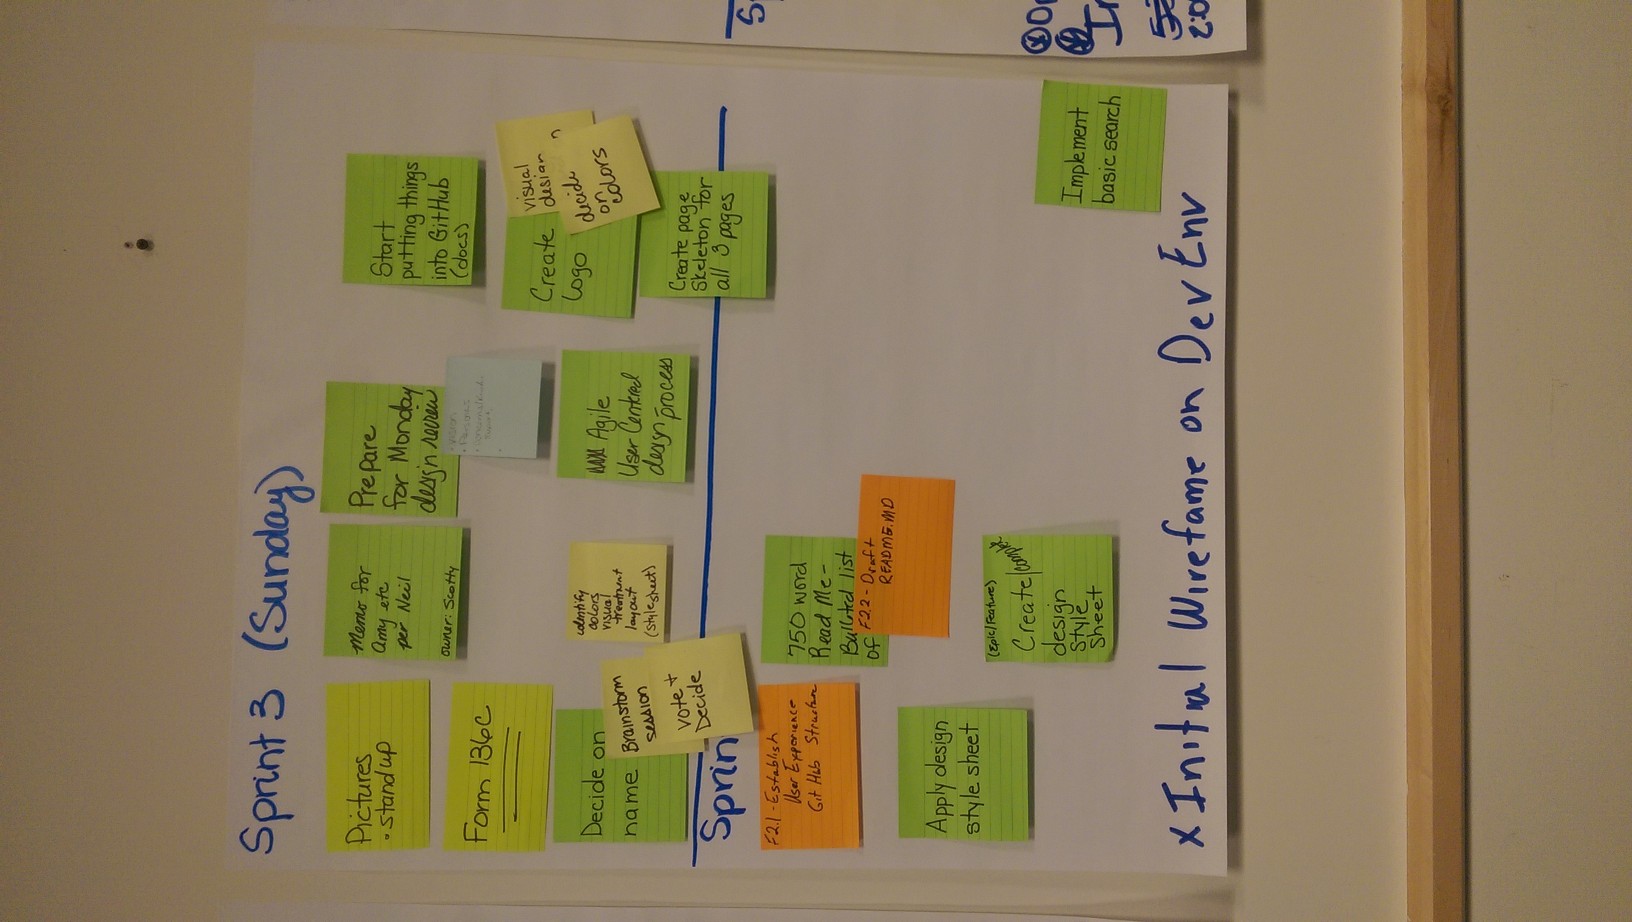 Sprint 3 (Sunday)
Pictures
• stand up
Memo for
Amy etc
per Neil
owner: Scotty
Prepare
for Monday
design review
• Vision
• Personas
Start
putting things
into GitHub
(docs)
Form 136C
Create
logo
visual
design
decide
on
colors
Decide on
name
Brainstorm
session
vote +
Decide
identify
colors
visual
treatment
layout
(stylesheet)
Agile
User Centred
design process
Create page
Skeleton for
all 3 pages
Sprin
F2.1 - Establish
User Experience
Git Hub Structure
750 word
Read Me -
Bulleted list
of
F2.2 - Draft
README.MD
Apply design
style sheet
(Epic/Feature)
Create/complete
design
style
sheet
Implement
basic search
x Initial Wirefame on Dev Env
S
In
2:0